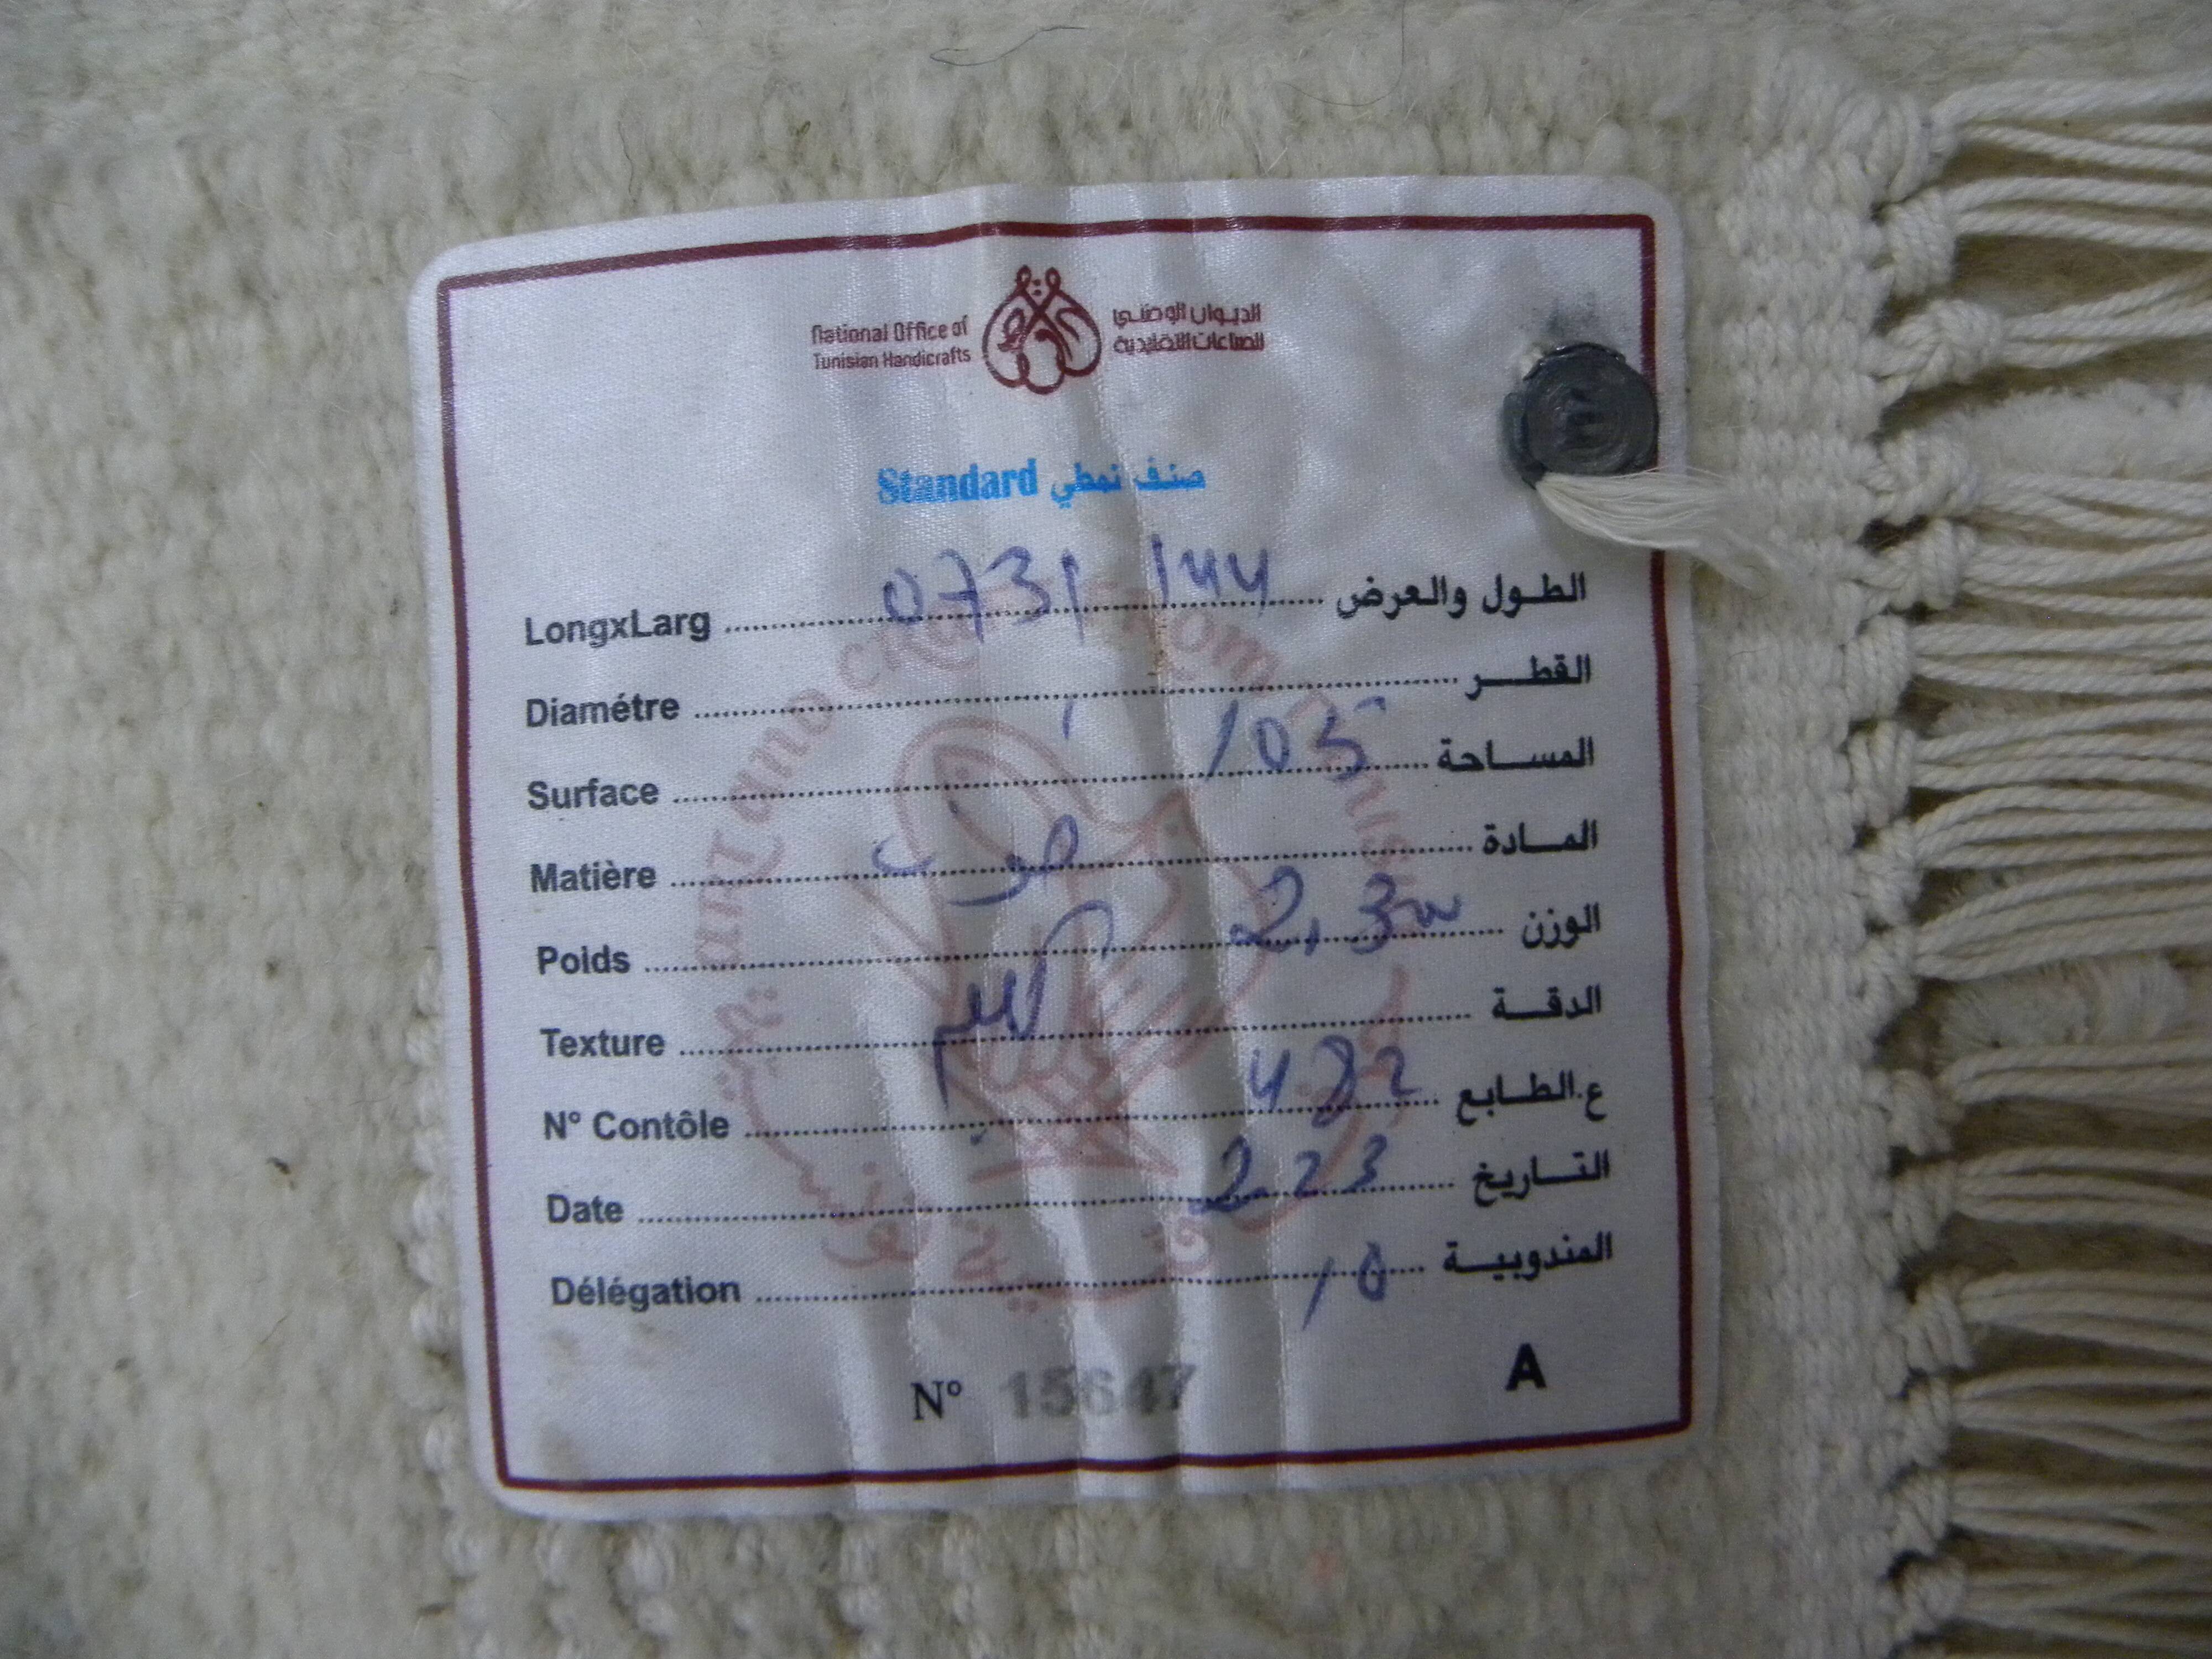 National Office of الديوان الوطني
Tunisian Handicrafts للصناعات التقليدية
Standard صنف نمطي
LongxLarg 073 / 144 الطول والعرض
Diamétre القطر
Surface 105 المساحة
Matière صوف المادة
Poids 2,300 الوزن
Texture كليم الدقة
N° Contôle 482 ع.الطابع
Date 223 التاريخ
Délégation 10 المندوبية
N° 15647 A